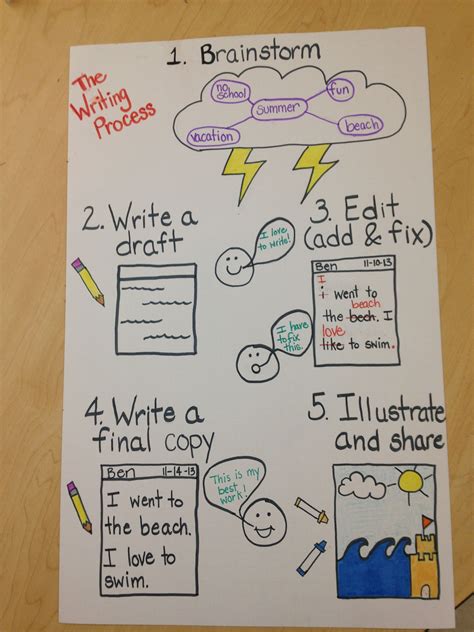 The
Writing
Process
1. Brainstorm
no
school
fun
summer
vacation
beach
2. Write a
draft
I love
to write!
3. Edit
(add & fix)
Ben 11-10-13
I
i went to
beach
the bech. I
love
like to swim.
I have
to fix
this.
4. Write a
final copy
Ben 11-14-13
I went to
the beach.
I love to
swim.
This is my
best
work!
5. Illustrate
and share